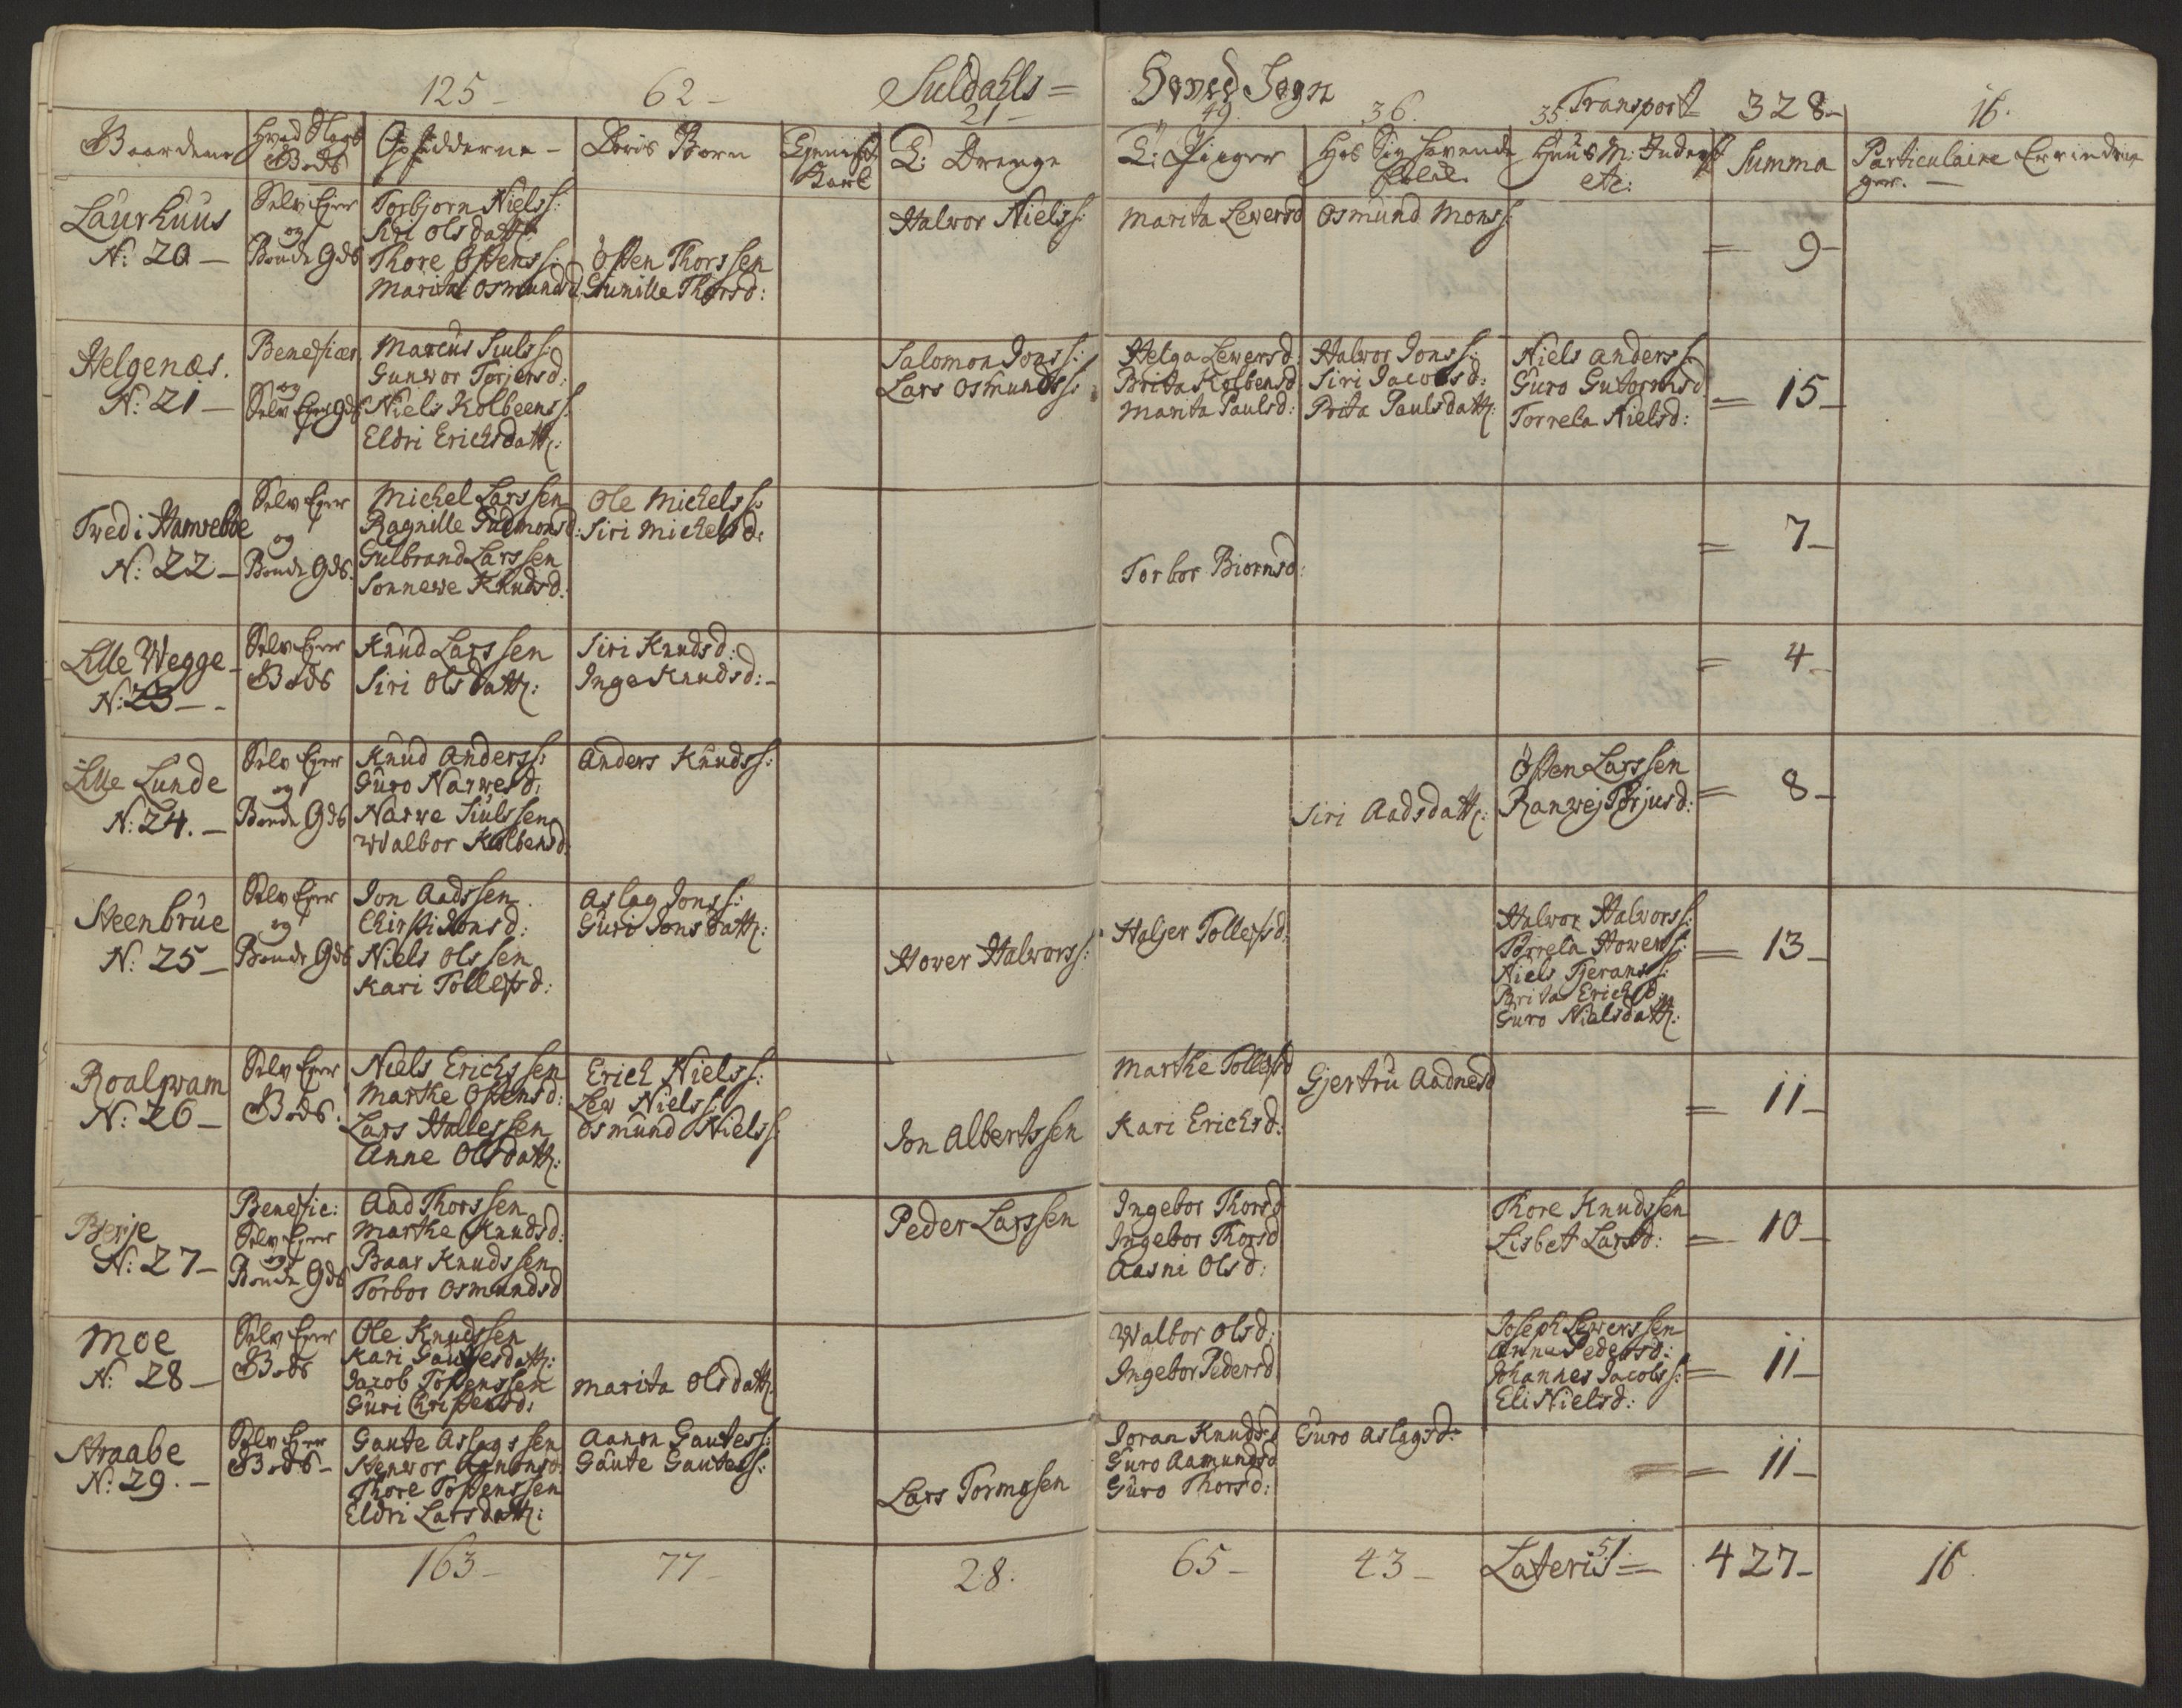 125 – 62 – Suldahls = Hoved Sogn
21 – 49. 36. 35. Transport 328 – 16.
Gaardene Hvad Slags Gods Opsidderne – Deris Børn Tjeniste Karl T: Drenge T: Piiger Hos Sig havende Huus M: Inderst etc: Summa Particulaire Erindringer. –
Laurhuus
N: 20 –
Selv Ejer
og
Bonde Gds
Torbjorn Nielss:
Siri Olsdattr:
Thore Østenss:
Marita Osmundsd:
Østen Thorssen
Gunille Thorsd:
Halvor Nielss:
Marita Lewersd
Osmund Monss:
= 9 –
Helgenæs.
N: 21 –
Benificer
og
Selv Ejer Gds
Marcus Siulss:
Gunvor Torjersd:
Niels Kolbeenss:
Eldri Erichsdattr:
Salomon Jonss:
Lars Osmundss:
Helga Lewersd:
Brita Kolbensd
Marita Paulsd:
Halvor Jonss:
Siri Jacobsd:
Brita Paulsdattr:
Niels Anderss:
Guro Gutormsd
Torrela Nielsd:
= 15 –
Twed i Hamrebøe
N: 22 –
Selv Ejer
og
Bonde Gds.
Michel Larssen
Ragnille Gudmonsd:
Gulbrand Larssen
Sonnewe Knudsd:
Ole Michelss:
Siri Michelsd:
Torbor Biornsd:
= 7 –
Lille Wegge –
N: 23 – –
Selv Ejer
Gods
Knud Larssen
Siri Olsdattr:
Siri Knudsd:
Inge Knudsd: –
= 4 –
Lille Lunde
N: 24. –
Selv Ejer
og
Bonde Gds
Knud Anderss:
Guro Narwesd:
Narwe Siulssen
Walbor Kolbensd:
Anders Knudss:
Siri Aadsdattr:
Østen Larssen
Ranvej Torjusd:
= 8 –
Steenbrue
N: 25 –
Selv Ejer
og
Bonde Gds
Jon Aadssen
Chirsti Jonsd:
Niels Olssen
Kari Tollefsd:
Aslag Jonss:
Guri Jonsdattr:
Hover Halvorss:
Haljer Tollefsd:
Halvor Halvorss:
Torrela Howerss:
Niels Tjeranss:
Brita Erichsd:
Guro Nielsdattr:
= 13 –
Roalqvam
N: 26 –
Selv Ejer
Gods.
Niels Erichssen
Marthe Østensd:
Lars Hallessen
Anne Olsdattr:
Erich Nielss:
Lew Nielss:
Osmund Nielss:
Jon Albertssen
Marthe Tollefsd
Kari Erichsd:
Gjertru Aadnesd
= 11 –
Berje
N: 27 –
Benefic:
Selv Ejer
og
Bonde Gds
Aad Thorssen
Marthe Knudsd:
Baar Knudssen
Torbor Osmundsd
Peder Larssen
Ingebor Thorsd
Ingebor Thorsd
Aasni Olsd:
Thore Knudssen
Lisbet Larsd:
= 10 –
Moe
N: 28 –
Selv Ejer
Gods
Ole Knudssen
Kari Gautesdattr:
Jacob Tostenssen
Guri Christensd:
Marita Olsdattr
Walbor Olsd:
Ingebor Pedersd
Joseph Lewerssen
Anna Pedersd:
Johannes Jacobss:
Eli Nielsd:
= 11 –
Straabe
N: 29. –
Selv Ejer
Gods –
Gaute Aslagssen
Stenvor Agnonsd:
Thore Tostenssen
Eldri Larsdattr:
Aanon Gautess:
Gaute Gautess:
Lars Tormssen
Joran Knudsd
Guro Aamundsd
Guro Thorsd:
Guro Aslagsd:
= 11 –
163 – 77 – 28. 65 – 43 – Lateris = 51. 427 – 16.